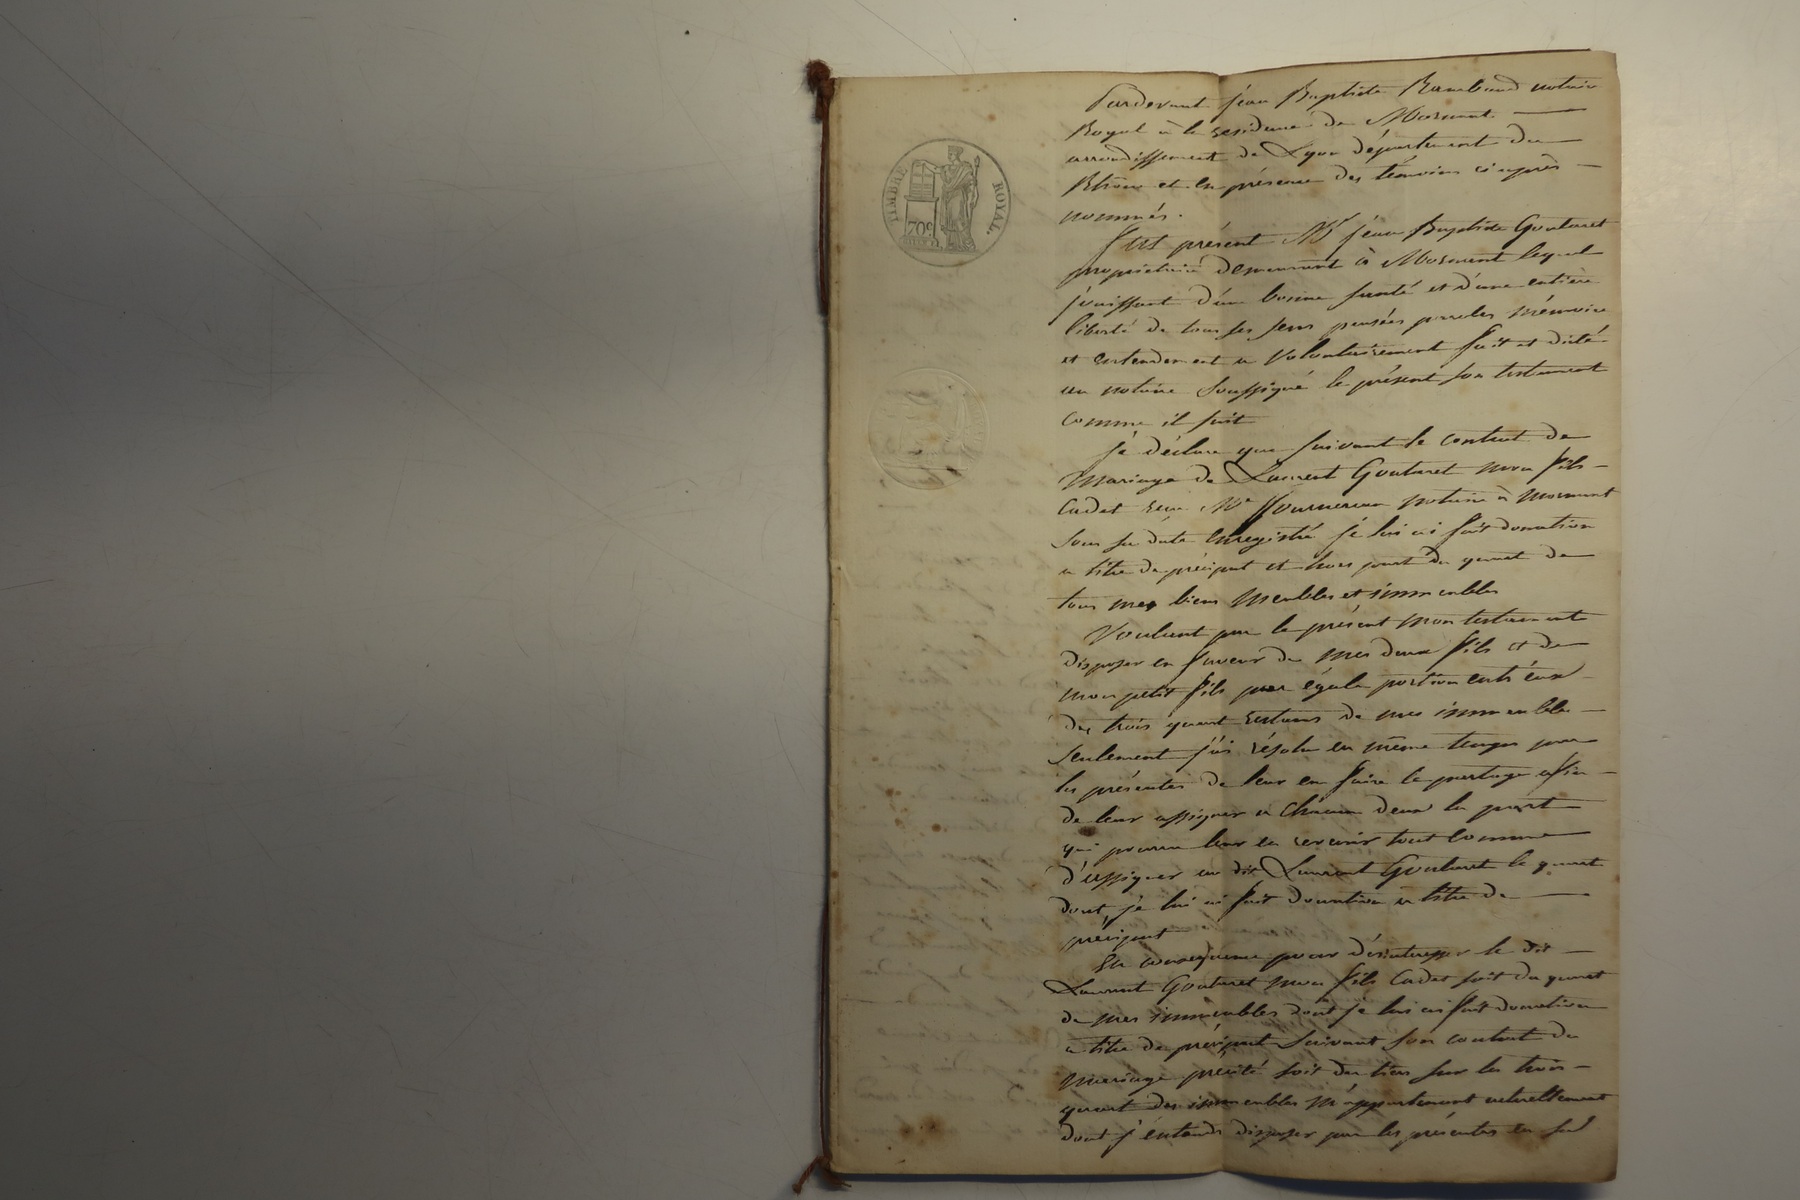 TIMBRE ROYAL.
70c
Pardevant jean Baptiste Rambaud notaire
Royal à la residence de Mornant
arrondissement de Lyon département du
Rhône et en présence des témoins ci après
nommés.
fut présent Mr jean Baptiste Goutaret
propriétaire demeurant à Mornant lequel
jouissant d'une bonne santé et d'une entière
liberté de tous ses sens pensées paroles mémoire
et entendement a volontairement fait et dicté
au notaire soussigné le présent son testament
comme il suit
je déclare que suivant le contrat de
mariage de Laurent Goutaret mon fils
cadet reçu Me notaire à mornant
sous sa date enregistré je lui ai fait donation
a titre de préciput et hors part du quart de
tous mes biens meubles et immeubles
Voulant par le présent mon testament
disposer en faveur de mes deux fils et de
mon petit fils par égale portion entr'eux
des trois quart restans de mes immeubles
seulement j'ai résolu en même temps par
les présentes de leur en faire le partage afin
de leur assigner a chacun deux la part
qui pourra leur en revenir tout comme
d'assigner au dit Laurent Goutaret le quart
dont je lui ai fait donation a titre de
préciput
En conséquence pour désintéresser le dit
Laurent Goutaret mon fils cadet soit du quart
de mes immeubles dont je lui ai fait donation
a titre de préciput suivant son contrat de
mariage précité soit du tiers sur les trois
quart des immeubles m'appartenant actuellement
dont j'entends disposer par les présentes en sa